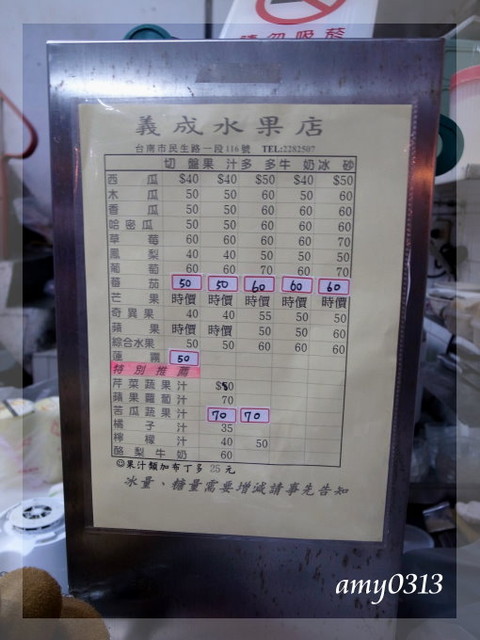 請勿吸菸
義成水果店
台南市民生路一段116號 TEL:2282507
切盤 果汁 多多 牛奶 冰砂
西瓜 $40 $40 $50 $40 $50
木瓜 50 50 60 50 60
香瓜 50 50 60 60 60
哈密瓜 50 50 60 60 60
草莓 60 60 60 60 70
鳳梨 40 40 50 50 50
葡萄 60 60 70 60 70
蕃茄 50 50 60 60 60
芒果 時價 時價 時價 時價 時價
奇異果 40 40 55 50 50
蘋果 時價 時價 50 50 60
綜合水果 50 50 60 60 60
蓮霧 50
特別推薦
芹菜蔬果汁
蘋果蘿蔔汁 70
苦瓜蔬果汁 70 70
橘子汁 35
檸檬汁 40 50
酪梨牛奶 60
☺果汁類加布丁多25元
冰量、糖量需要增減請事先告知
amy0313